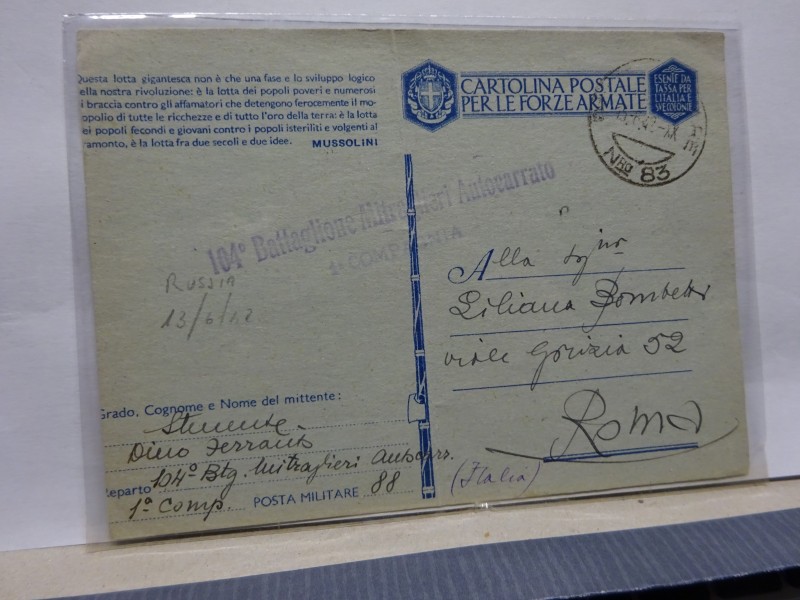 Questa lotta gigantesca non è che una fase e lo sviluppo logico
ella nostra rivoluzione: è la lotta dei popoli poveri e numerosi
i braccia contro gli affamatori che detengono ferocemente il mo-
opolio di tutte le ricchezze e di tutto l'oro della terra: è la lotta
ei popoli fecondi e giovani contro i popoli isteriliti e volgenti al
ramonto, è la lotta fra due secoli e due idee.
MUSSOLINI
CARTOLINA POSTALE
PER LE FORZE ARMATE
ESENTE DA
TASSA PER
L'ITALIA E
SPEDIZIONE
83
104° Battaglione Mitraglieri Autocarrato
1ª COMPAGNIA
RUSSIA
13/6/42
Alla Sig.na
Liliana
viale Gorizia 52
Roma
(Italia)
Grado, Cognome e Nome del mittente:
Dino
104° Btg. Mitraglieri Autocarr.
Reparto
1ª Comp.
POSTA MILITARE 88